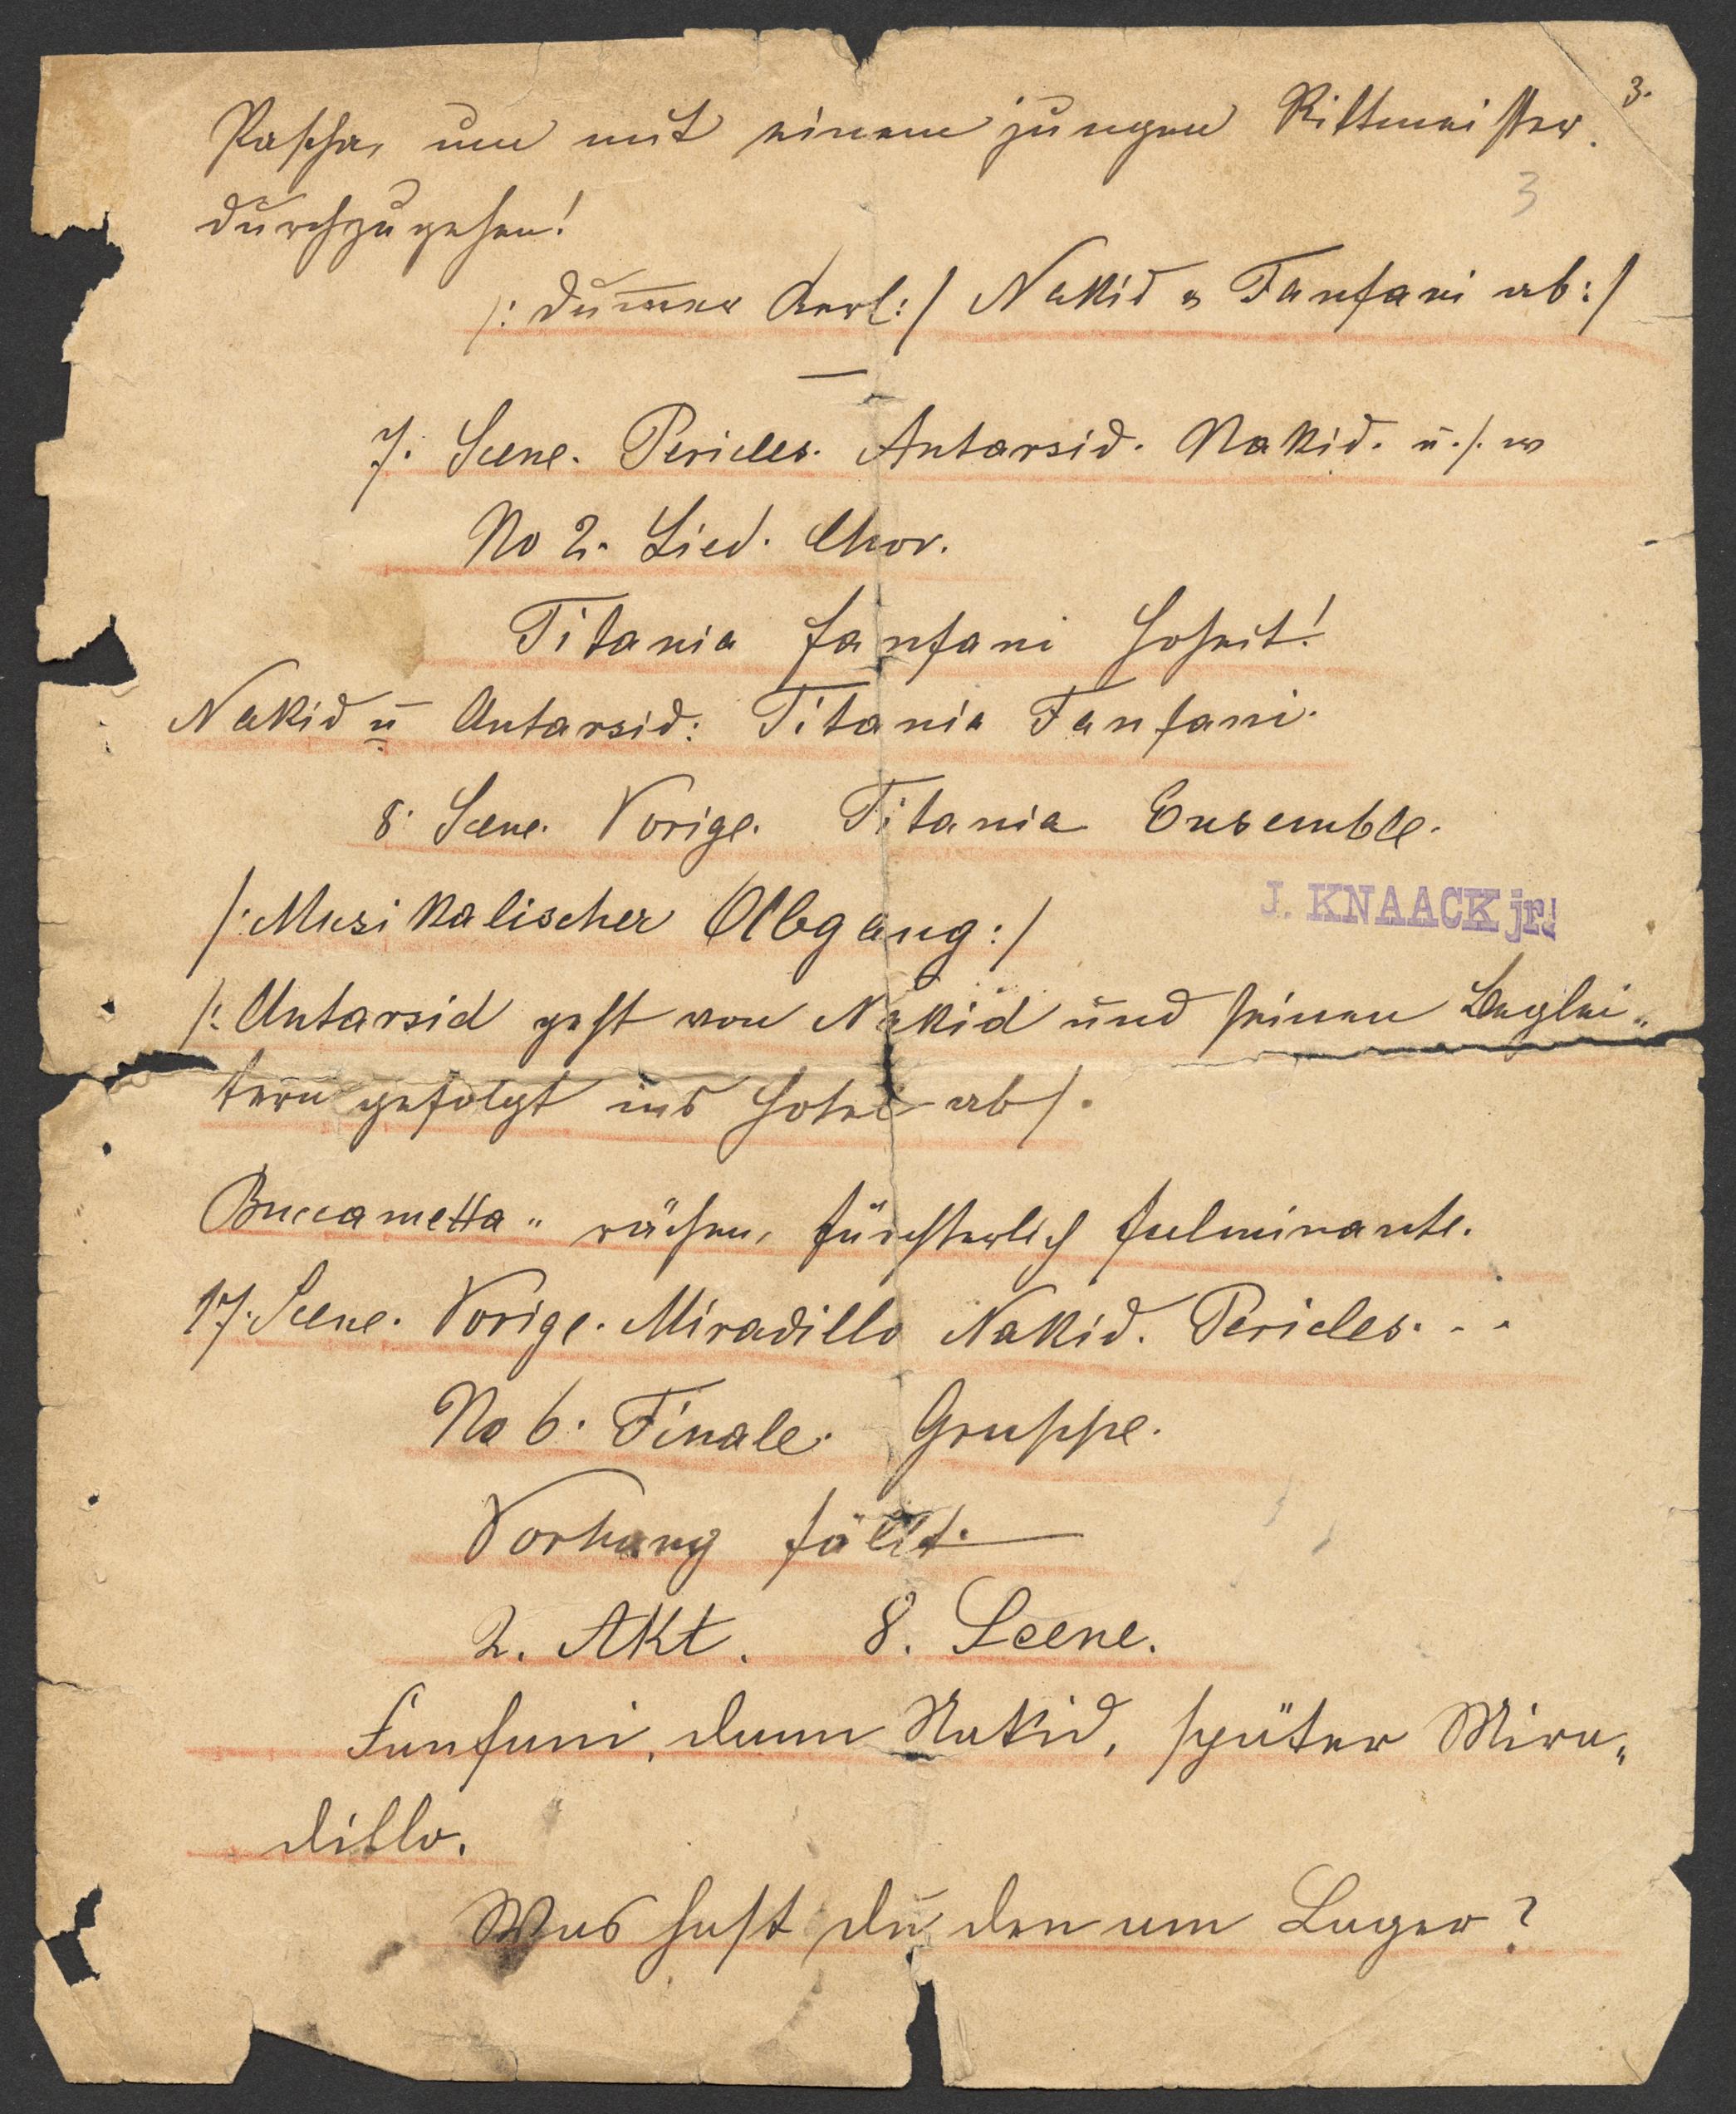 3.
Pascha, um mit einem jungen Rittmeister
3
durchzugehen!
/: dum̅er Kerl :/ Nakid & Fanfani ab :/
7. Scene. Pericles. Antarsid. Nakid. u. s. w
No 2. Lied. Chor.
Titania Fanfani Hoheit!
Nakid u Antarsid: Titania Fanfani.
8. Scene. Vorige. Titania Ensemble.
J. KNAACK jr.
/: Musikalischer Abgang :/
/: Antarsid geht von Nakid und seinen Beglei„
tern gefolgt ins Hotel ab /.
Buccametta „ rächen, fürchterlich fulminante.
17. Scene. Vorige. Miradillo Nakid. Pericles. - -
No 6. Finale. Gruppe.
Vorhang fällt. —
2. Akt. 8. Scene.
Fanfani, dann Nakid, später Mira„
dillo.
Was hast du den am Lager?